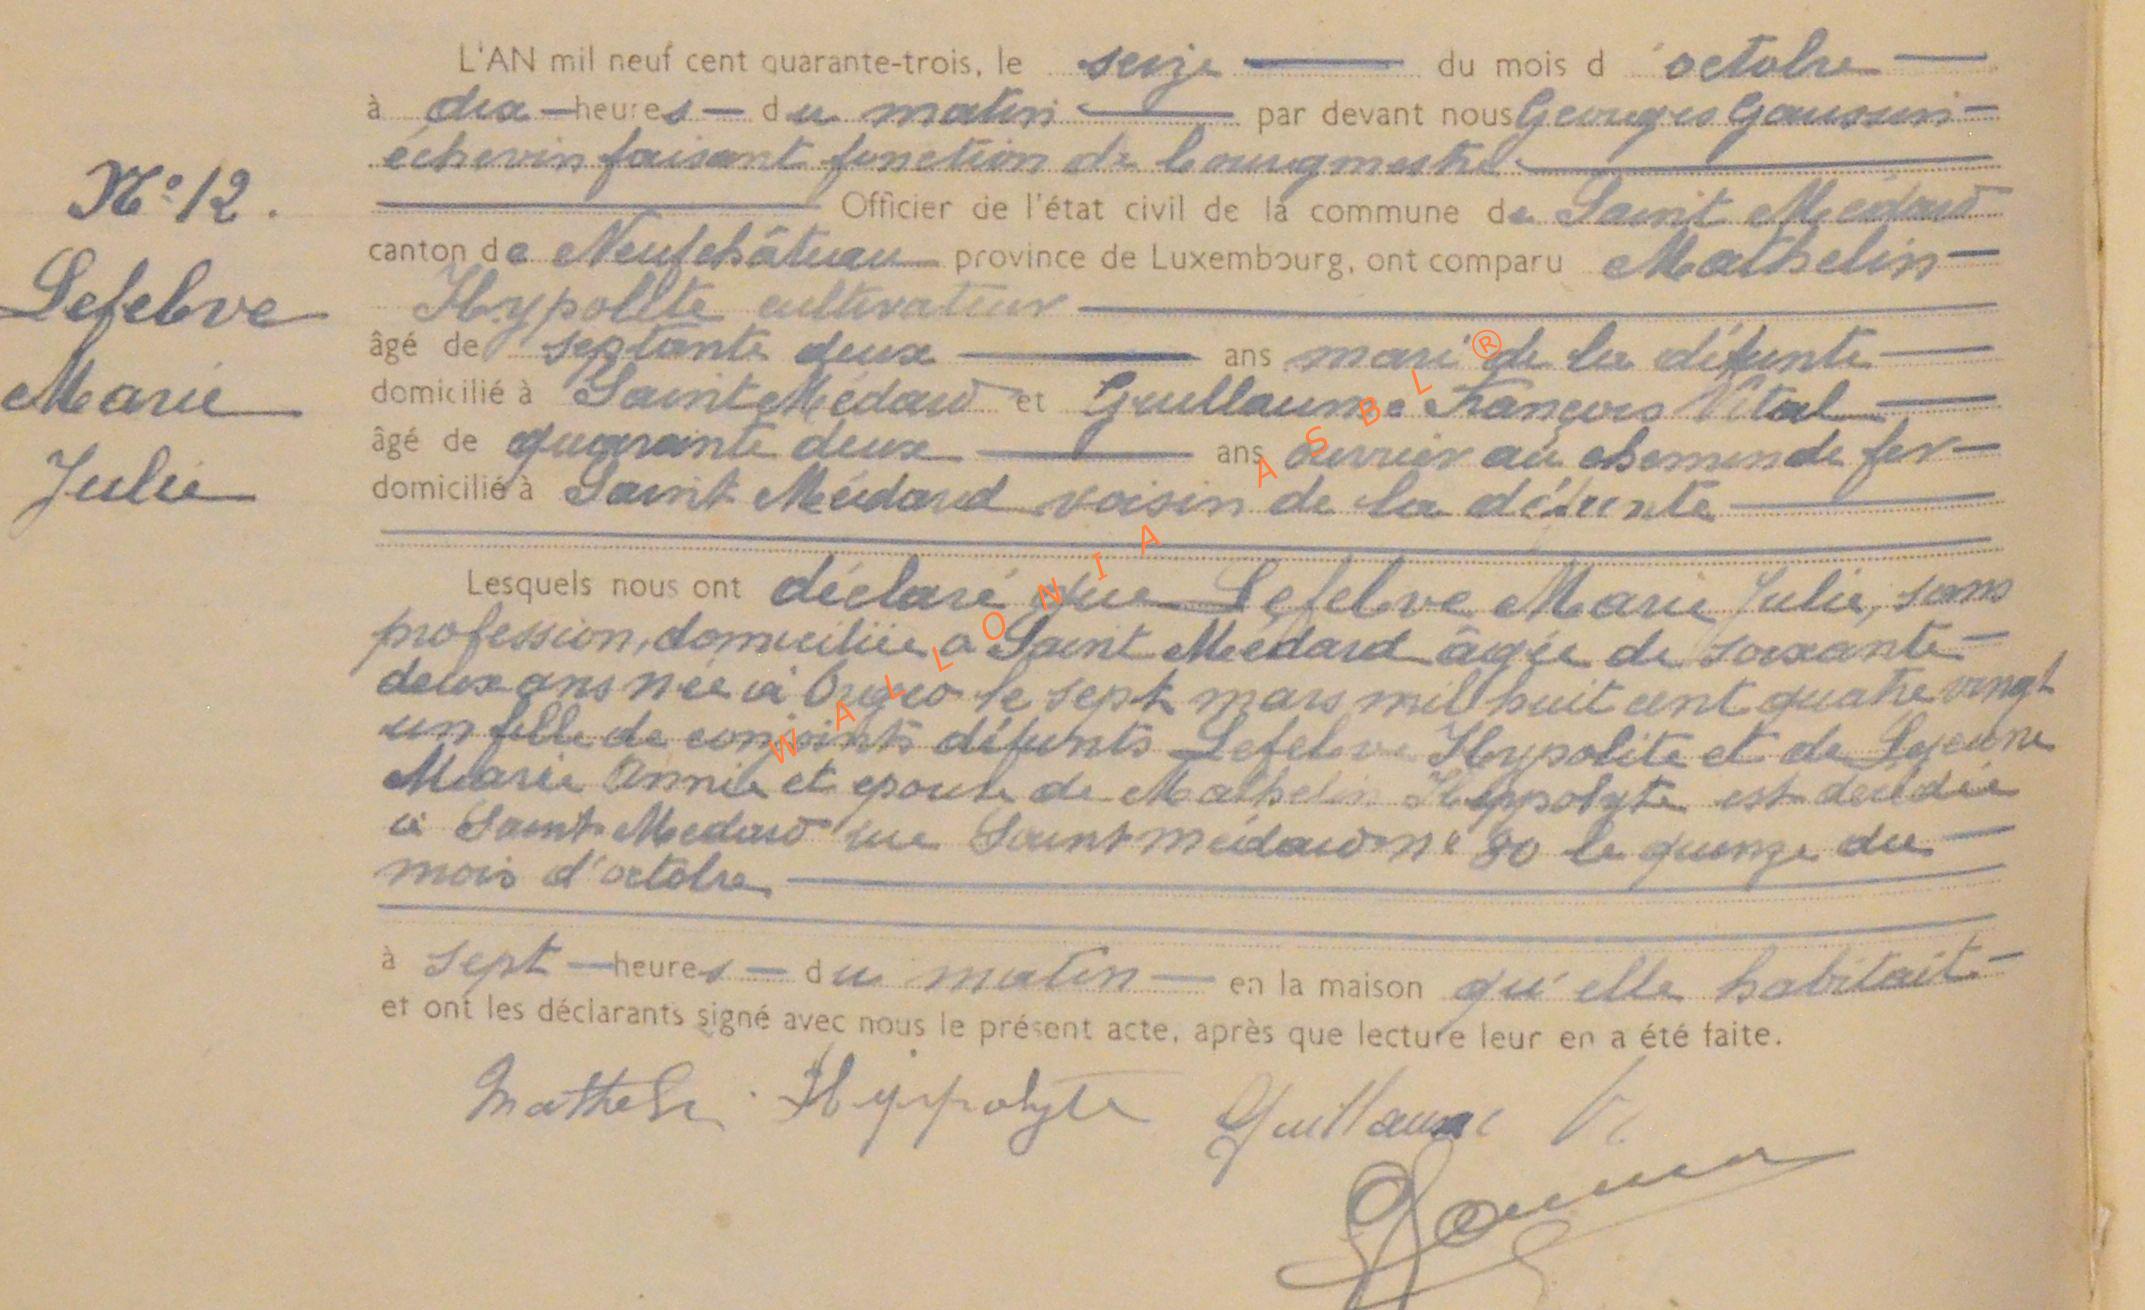 L'AN mil neuf cent quarante-trois, le seize du mois d'octobre
à dix heures du matin par devant nous Georges Gaussin
échevin faisant fonction de bourgmestre
N° 12.
Officier de l'état civil de la commune de Saint Médard
canton de Neufchâteau province de Luxembourg, ont comparu Mathelin
Lefebvre
Hypolite cultivateur
âgé de septante deux ans mari de la défunte
Marie
domicilié à Saint Médard et Guillaume François Vital
âgé de quarante deux ans ouvrier au chemin de fer
Julie
domicilié à Saint Médard voisin de la défunte
Lesquels nous ont déclaré que Lefebvre Marie Julie, sans
profession, domiciliée a Saint Médard âgée de soixante
deux ans née à Orgeo le sept mars mil huit cent quatre vingt
un fille de conjoints défunts Lefebvre Hypolite et de Lejeune
Marie Annie et epouse de Mathelin Hyppolyte est décédée
à Saint Médard rue Saint médard n° 80 le quinze du
mois d'octobre
à sept heures du matin en la maison qu'elle habitait
et ont les déclarants signé avec nous le présent acte, après que lecture leur en a été faite.
Mathelin Hyppolyte Guillaume V.
WALLONIA ASBL ®